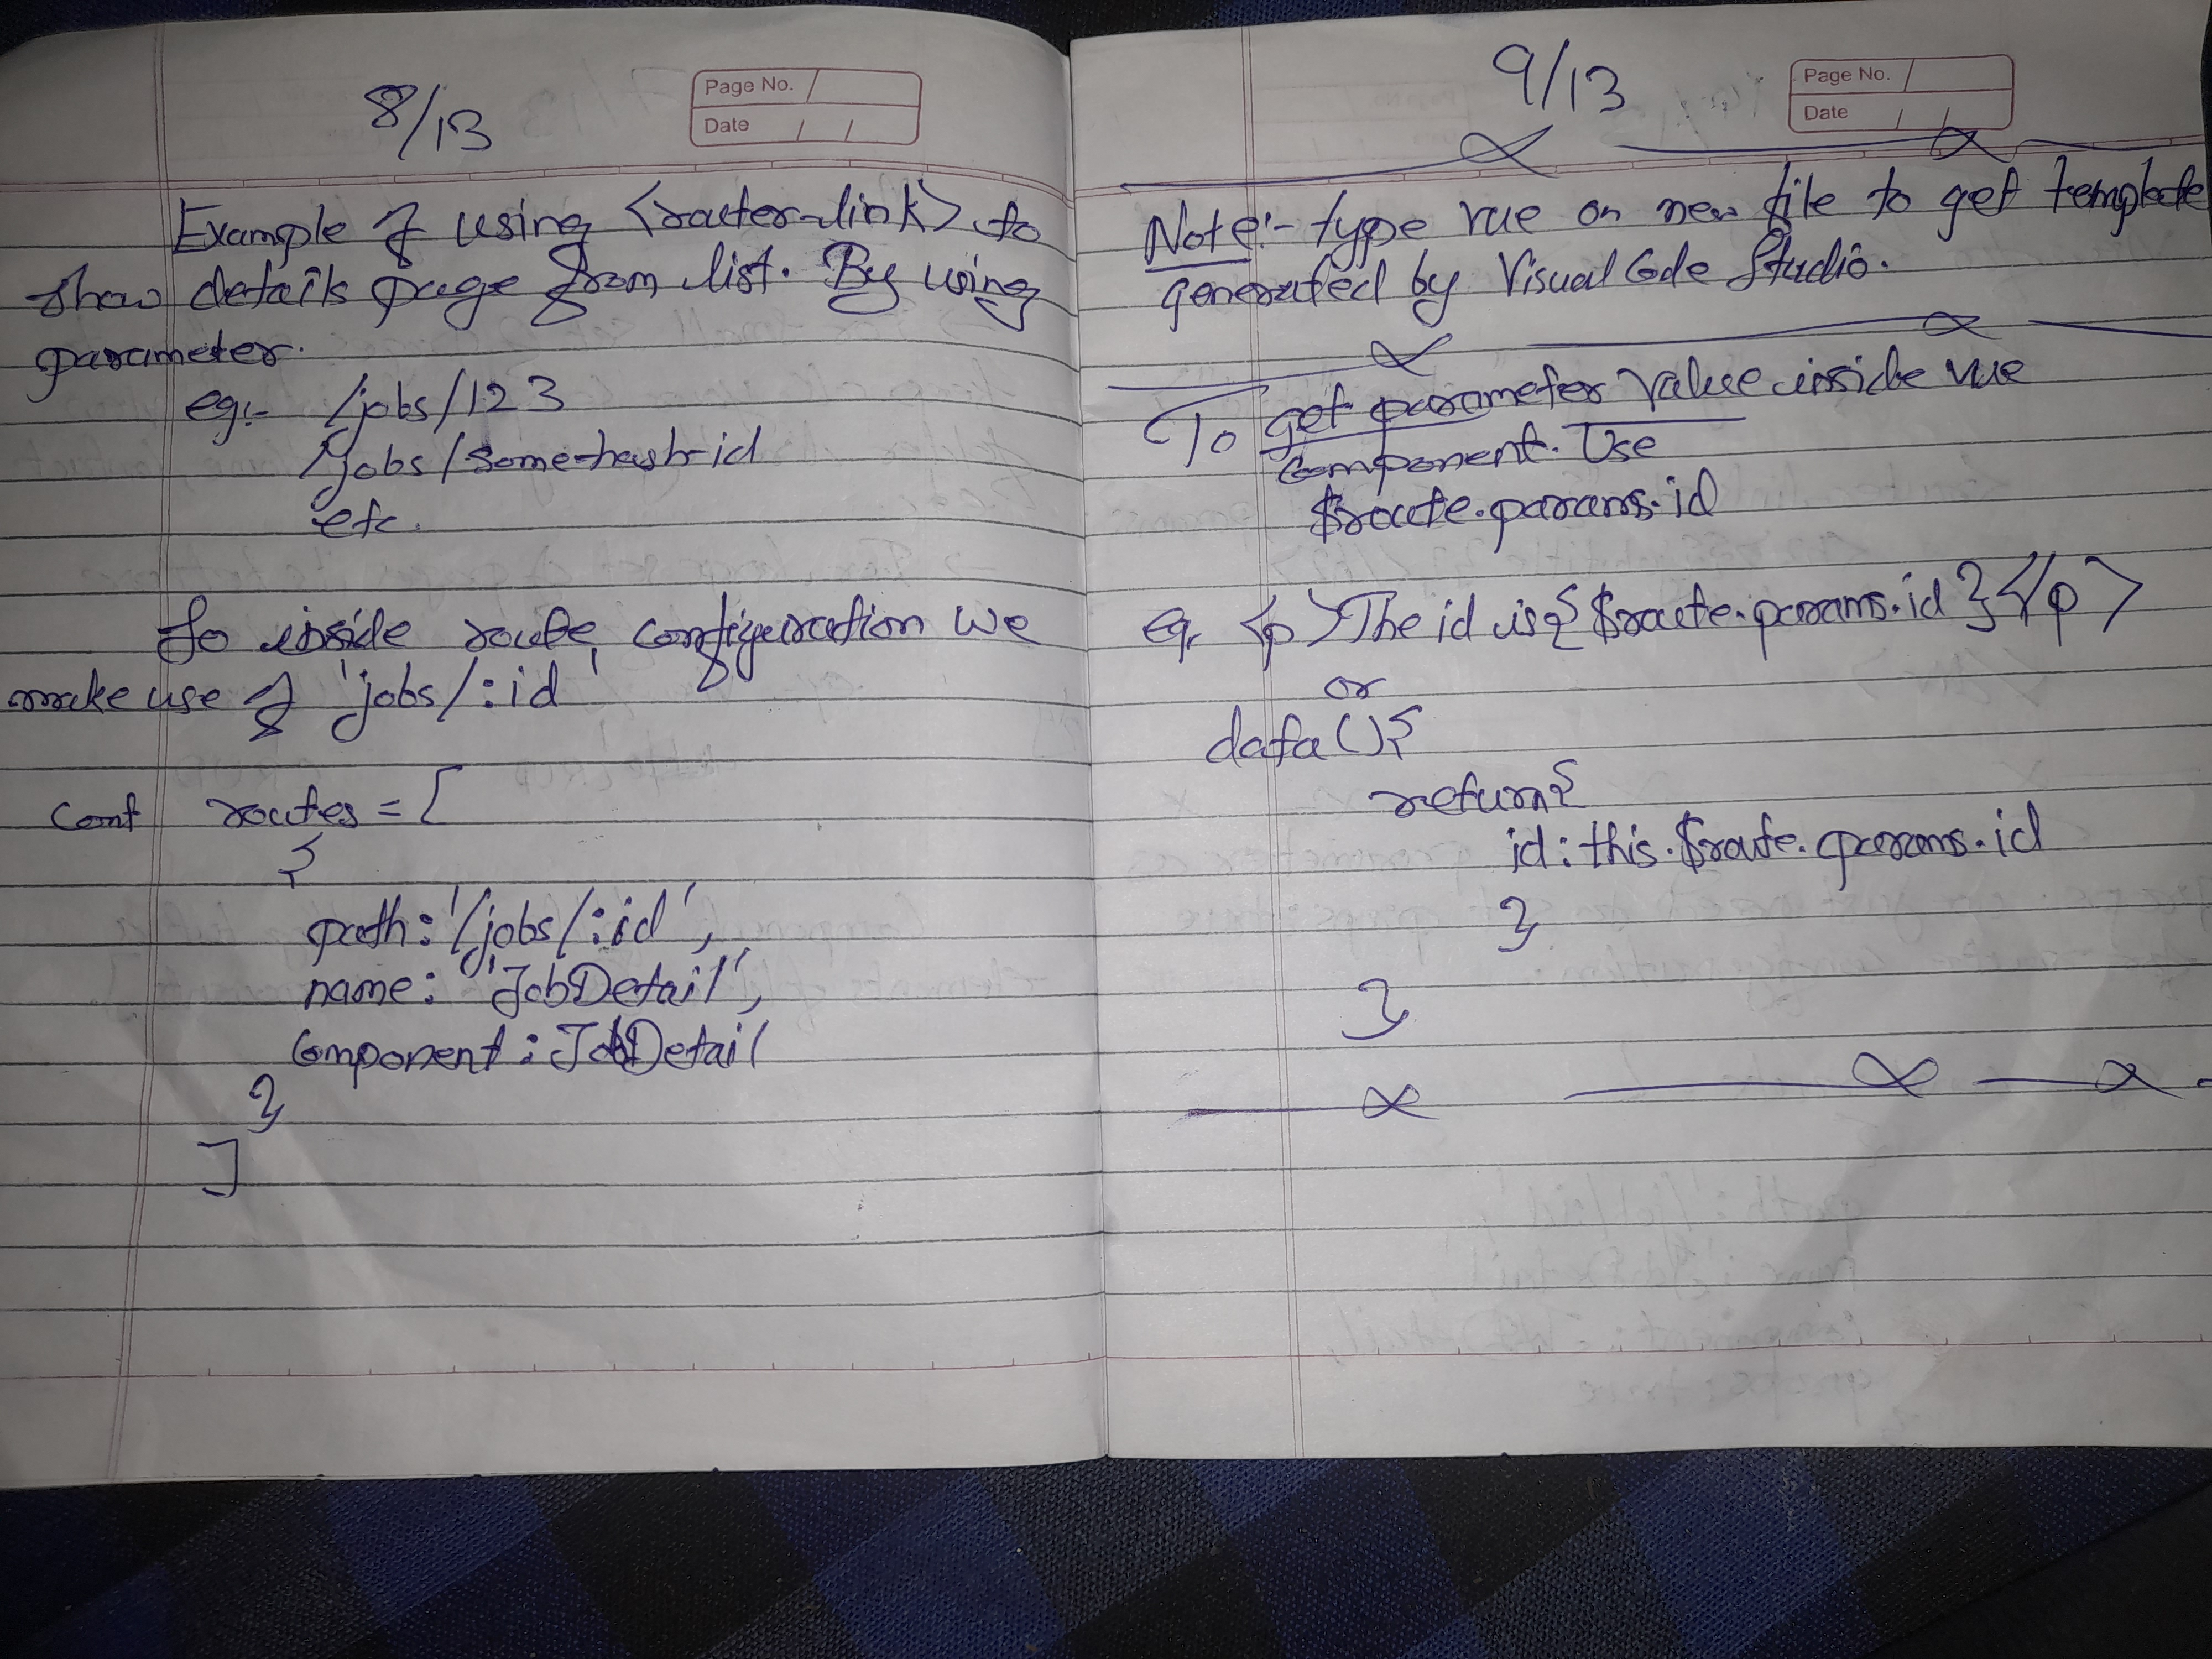 8/13
Page No.
Date / /
Example of using <router-link> to
show details page from list. By using
parameter.
eg:- /jobs/123
/jobs/some-hash-id
etc.
So inside route configuration we
make use of 'jobs/:id'
const routes = [
{
path: '/jobs/:id',
name: 'JobDetail',
component: JobDetail
}
]
9/13
Page No.
Date / /
Note:- type vue on new file to get template
generated by Visual Code Studio.
To get parameter value inside vue
component. Use
$route.params.id
eg. <p>The id is {$route.params.id}</p>
or
data(){
return{
id: this.$route.params.id
}
}